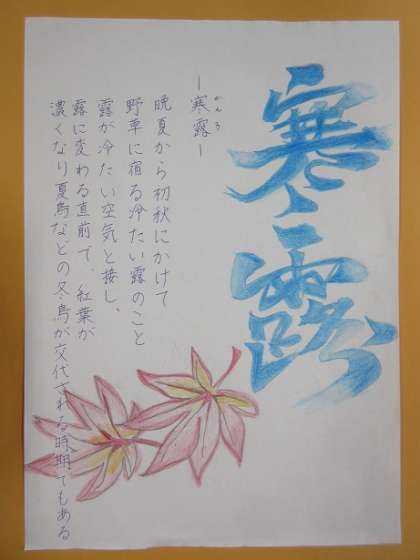 寒露
ー寒露ー
かんろ
晩夏から初秋にかけて
野草に宿る冷たい露のこと
露が冷たい空気と接し、
露に変わる直前で、紅葉が
濃くなり夏鳥などの冬鳥が交代される時期でもある